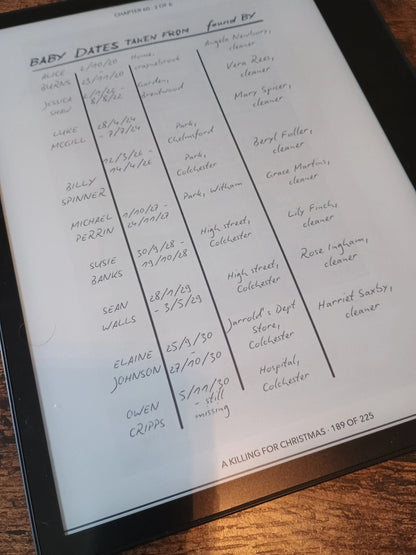 CHAPTER
BABY DATES TAKEN FROM found BY
ALICE BURNS
Home,
Angela Newbury, cleaner
JESSICA SHAW
- 8/8/22
Garden, Brentwood
Vera Rees, cleaner
LUKE MCGILL
28/4/24 - 7/7/24
Park, Chelmsford
Mary Spicer, cleaner
BILLY SPINNER
12/3/26 - 14/4/26
Park, Colchester
Beryl Fuller, cleaner
MICHAEL PERRIN
1/10/27 - 24/11/27
Park, Witham
Grace Martins, cleaner
SUSIE BANKS
30/9/28 - 19/10/28
High street, Colchester
Lily Finch, cleaner
SEAN WALLS
28/1/29 - 3/5/29
High street, Colchester
Rose Ingham, cleaner
ELAINE JOHNSON
25/9/30 - 27/10/30
Jarrold's Dept Store, Colchester
Harriet Saxby, cleaner
OWEN CRIPPS
5/11/30 - still missing
Hospital, Colchester
A KILLING FOR CHRISTMAS · 189 OF 225